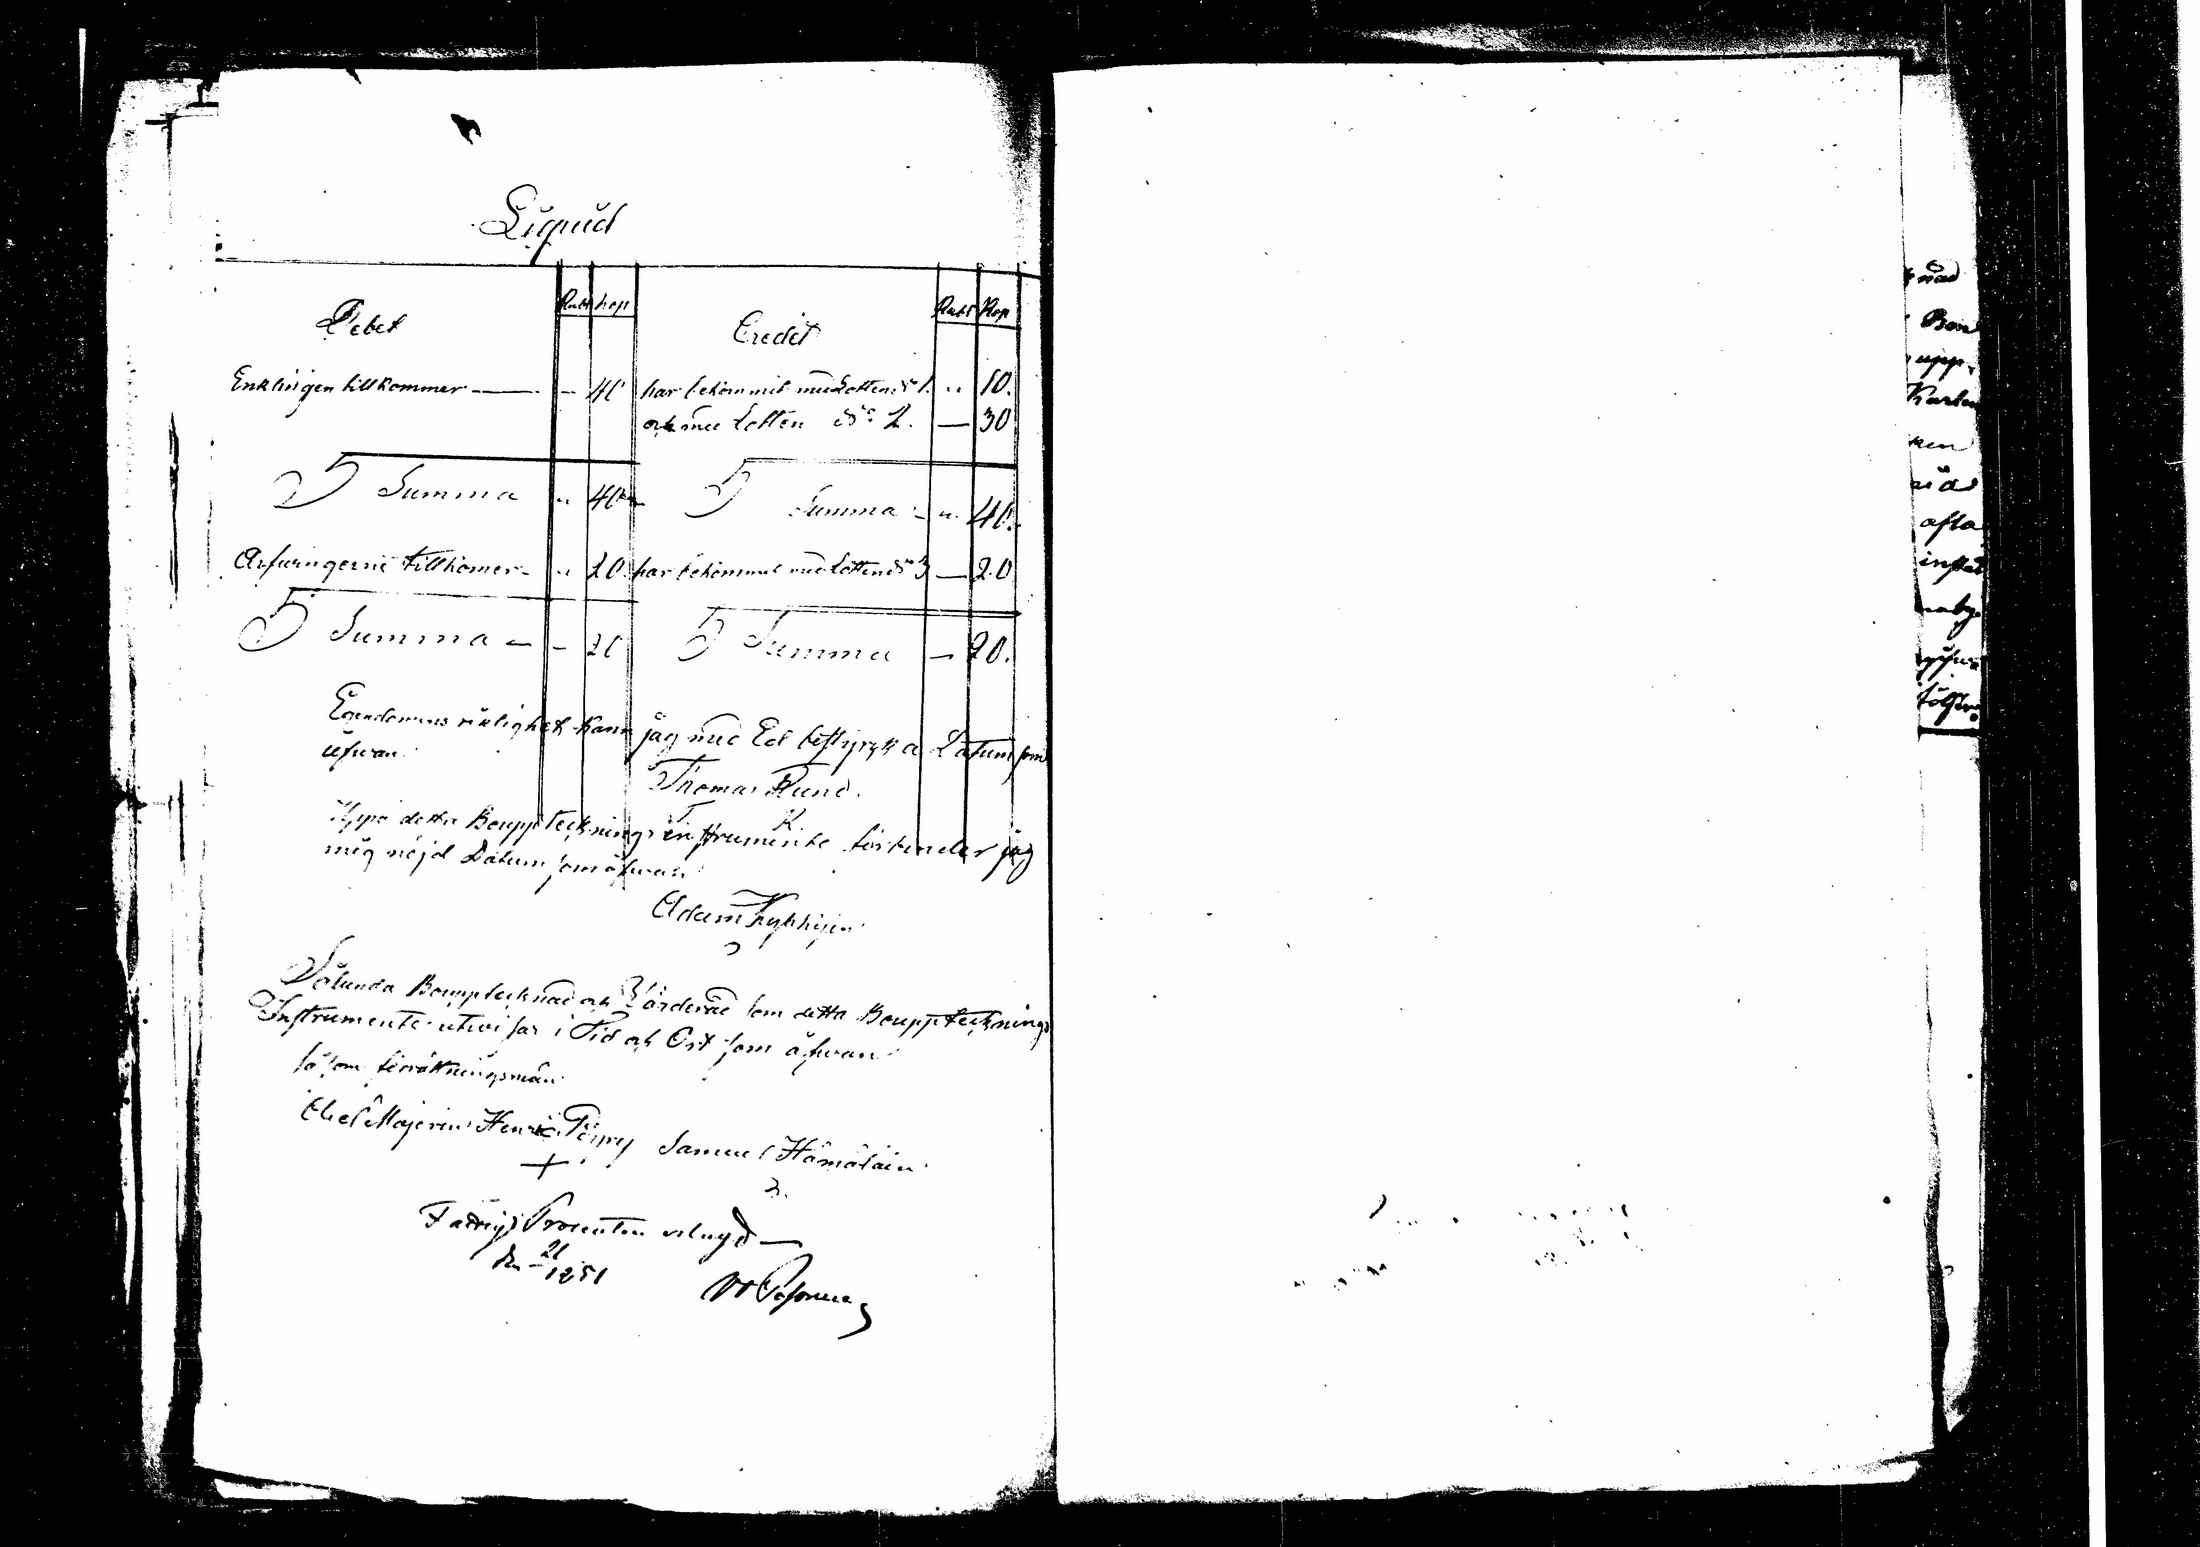 Liqvid
Debet Rubl kop Credit Rubl Kop
Enklingen tillkommer — - 40 har bekommit med Lotten No 1. " 10.
och med Lotten No 2. — 30
Summa " 40 Summa - " 40.
Arfvingerne tillkomer - " 20 har bekommit med Lotten No 3 — 20
Summa — - 20 Summa — 20.
Egendomens riktighet kann jag med Ed bestyrka Datum som
åfvan.
Thomas Rund.
T K
Uppå detta Bouppteckningsinstrumente förbinder jag
mig nöjd Datum som åfvan
Adam
Sålunda Bouppteknad och Värderad som detta Boupptecknings
Instrumente utvisar i Tid och Ort som åfvan.
såsom förrättningsmän
Abel Majorin Henric Pöyry Samuel Hämäläin
Fattigs Procenten erlagd —
21
1851